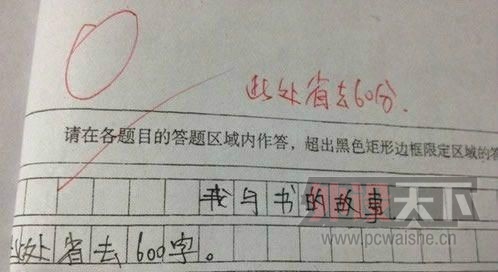 此处省去60分.
请在各题目的答题区域内作答，超出黑色矩形边框限定区域的答
我与书的故事
此处省去600字。
天下
www.pcwaishe.cn